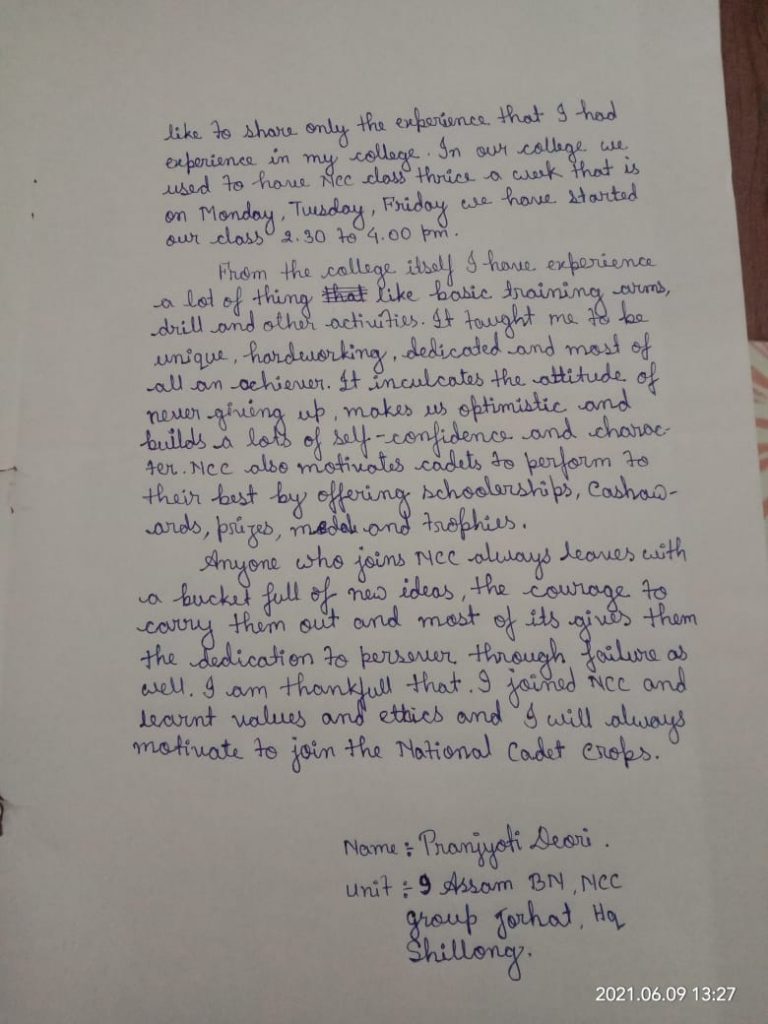 like to share only the experience that I had
experience in my college. In our college we
used to have NCC class thrice a week that is
on Monday, Tuesday, Friday we have started
our class 2.30 to 4.00 pm.
From the college itself I have experience
a lot of thing that like basic training arms,
drill and other activities. It taught me to be
unique, hardworking, dedicated and most of
all an achiever. It inculcates the attitude of
never giving up, makes us optimistic and
builds a lots of self-confidence and charac-
ter. NCC also motivates cadets to perform to
their best by offering schoolerships, Cashaw-
ards, prizes, medal and trophies.
Anyone who joins NCC always leaves with
a bucket full of new ideas, the courage to
carry them out and most of its gives them
the dedication to persever through failure as
well. I am thankfull that. I joined NCC and
learnt values and ethics and I will always
motivate to join the National Cadet Crops.
Name :- Pranjyoti Deori.
Unit :- 9 Assam BN, NCC
group Jorhat, Hq
Shillong.
2021.06.09 13:27